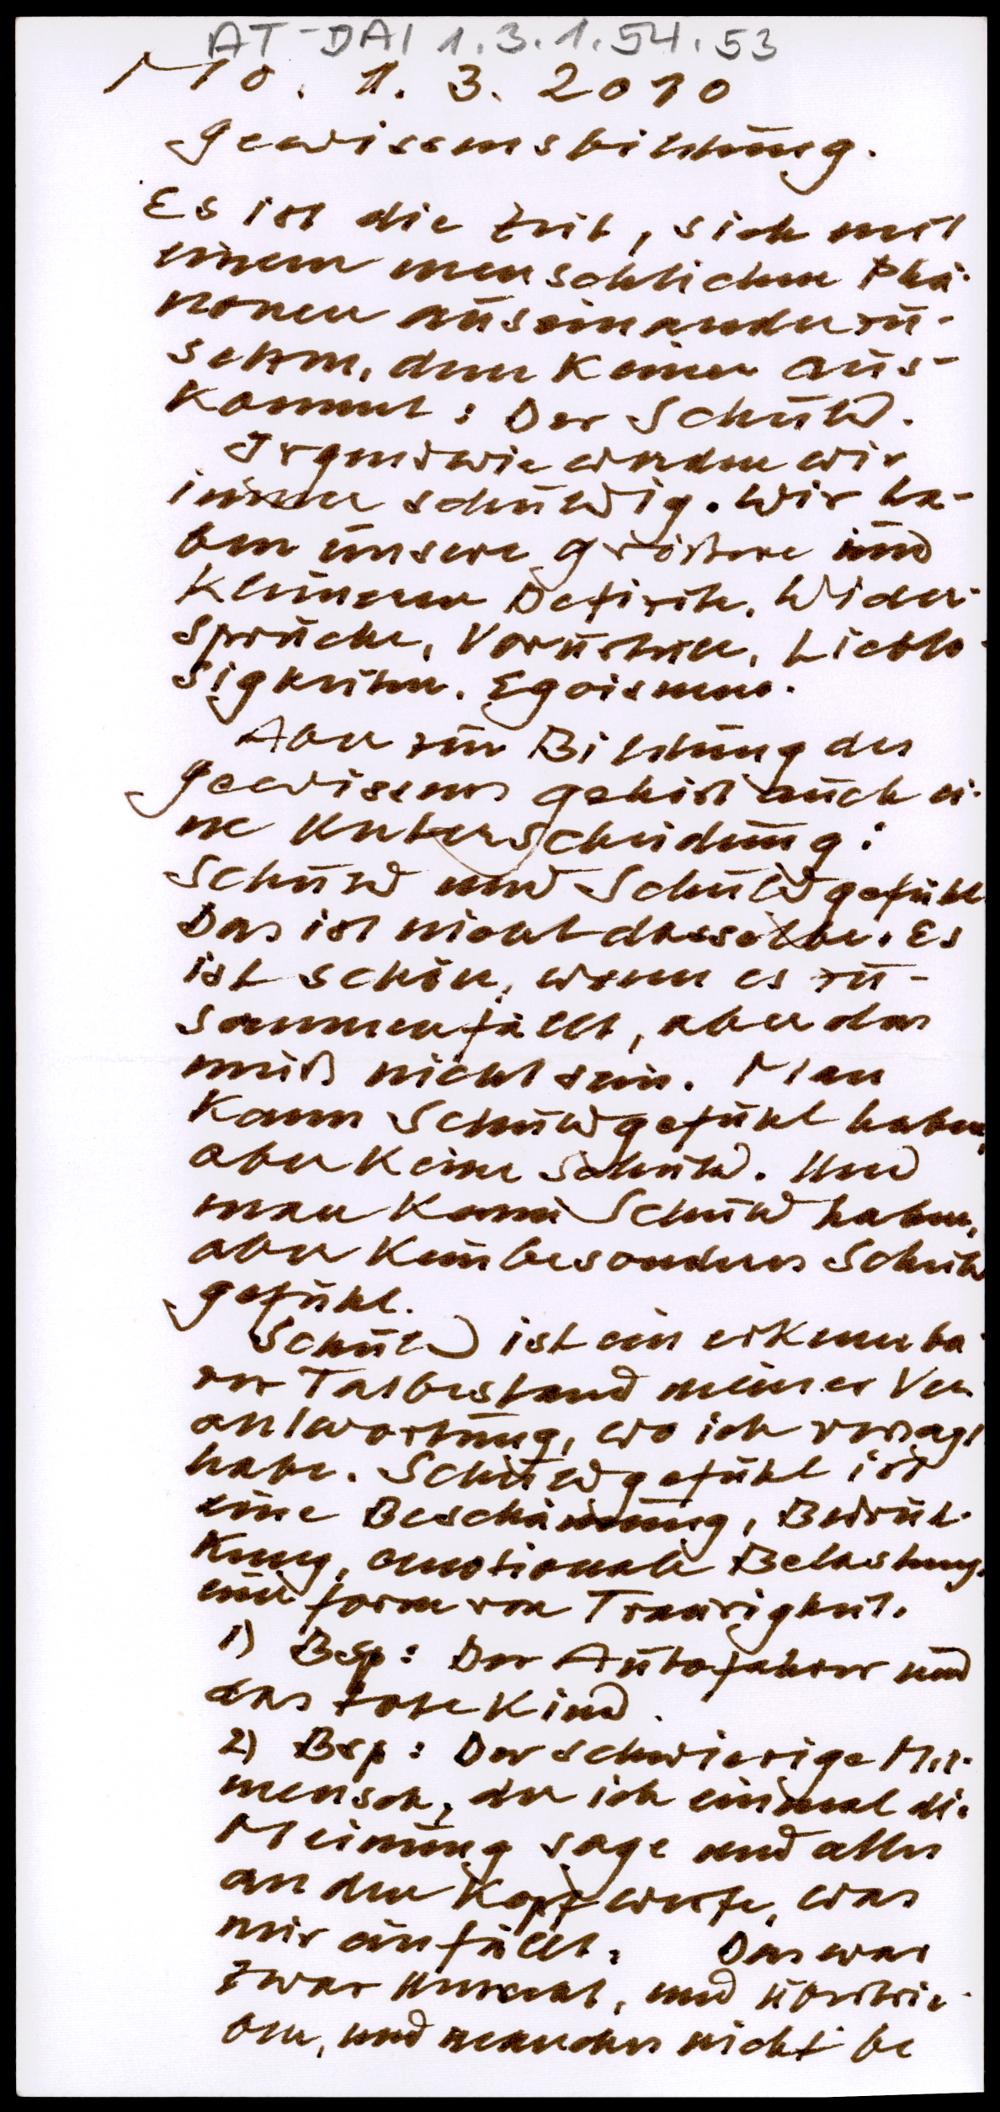 AT-DAI 1.3.1.54.53
Mo. 1. 3. 2010
Gewissensbildung.
Es ist die Zeit, sich mit
einem menschlichen Phä-
nomen auseinanderzu-
setzen, dem keiner aus-
kommt: Der Schuld.
Irgendwie werden wir
immer schuldig. Wir ha-
ben unsere größere und
kleineren Defizite. Wider-
sprüche, Vorurteile, Lieblo-
sigkeiten. Egoismen.
Aber zur Bildung des
Gewissens gehört auch ei-
ne Unterscheidung:
Schuld und Schuldgefühl
Das ist nicht dasselbe. Es
ist schön, wenn es zu-
sammenfällt, aber das
muß nicht sein. Man
kann Schuldgefühl haben,
aber keine Schuld. Und
man kann Schuld haben,
aber kein besonderes Schuld
gefühl.
Schuld ist ein erkennba-
rer Tatbestand meiner Ver-
antwortung, wo ich versagt
habe. Schuldgefühl ist
eine Beschämung, Bedrük-
kung, emotionale Belastung,
eine Form von Traurigkeit.
1) Bsp: Der Autofahrer und
das tote Kind.
2) Bsp: Der schwierige Mit-
mensch, der ich einmal die
Meinung sage und alles
an den Kopf werfe, was
mir einfällt. Das war
zwar Unrecht, und übertrie-
ben, und manches nicht be